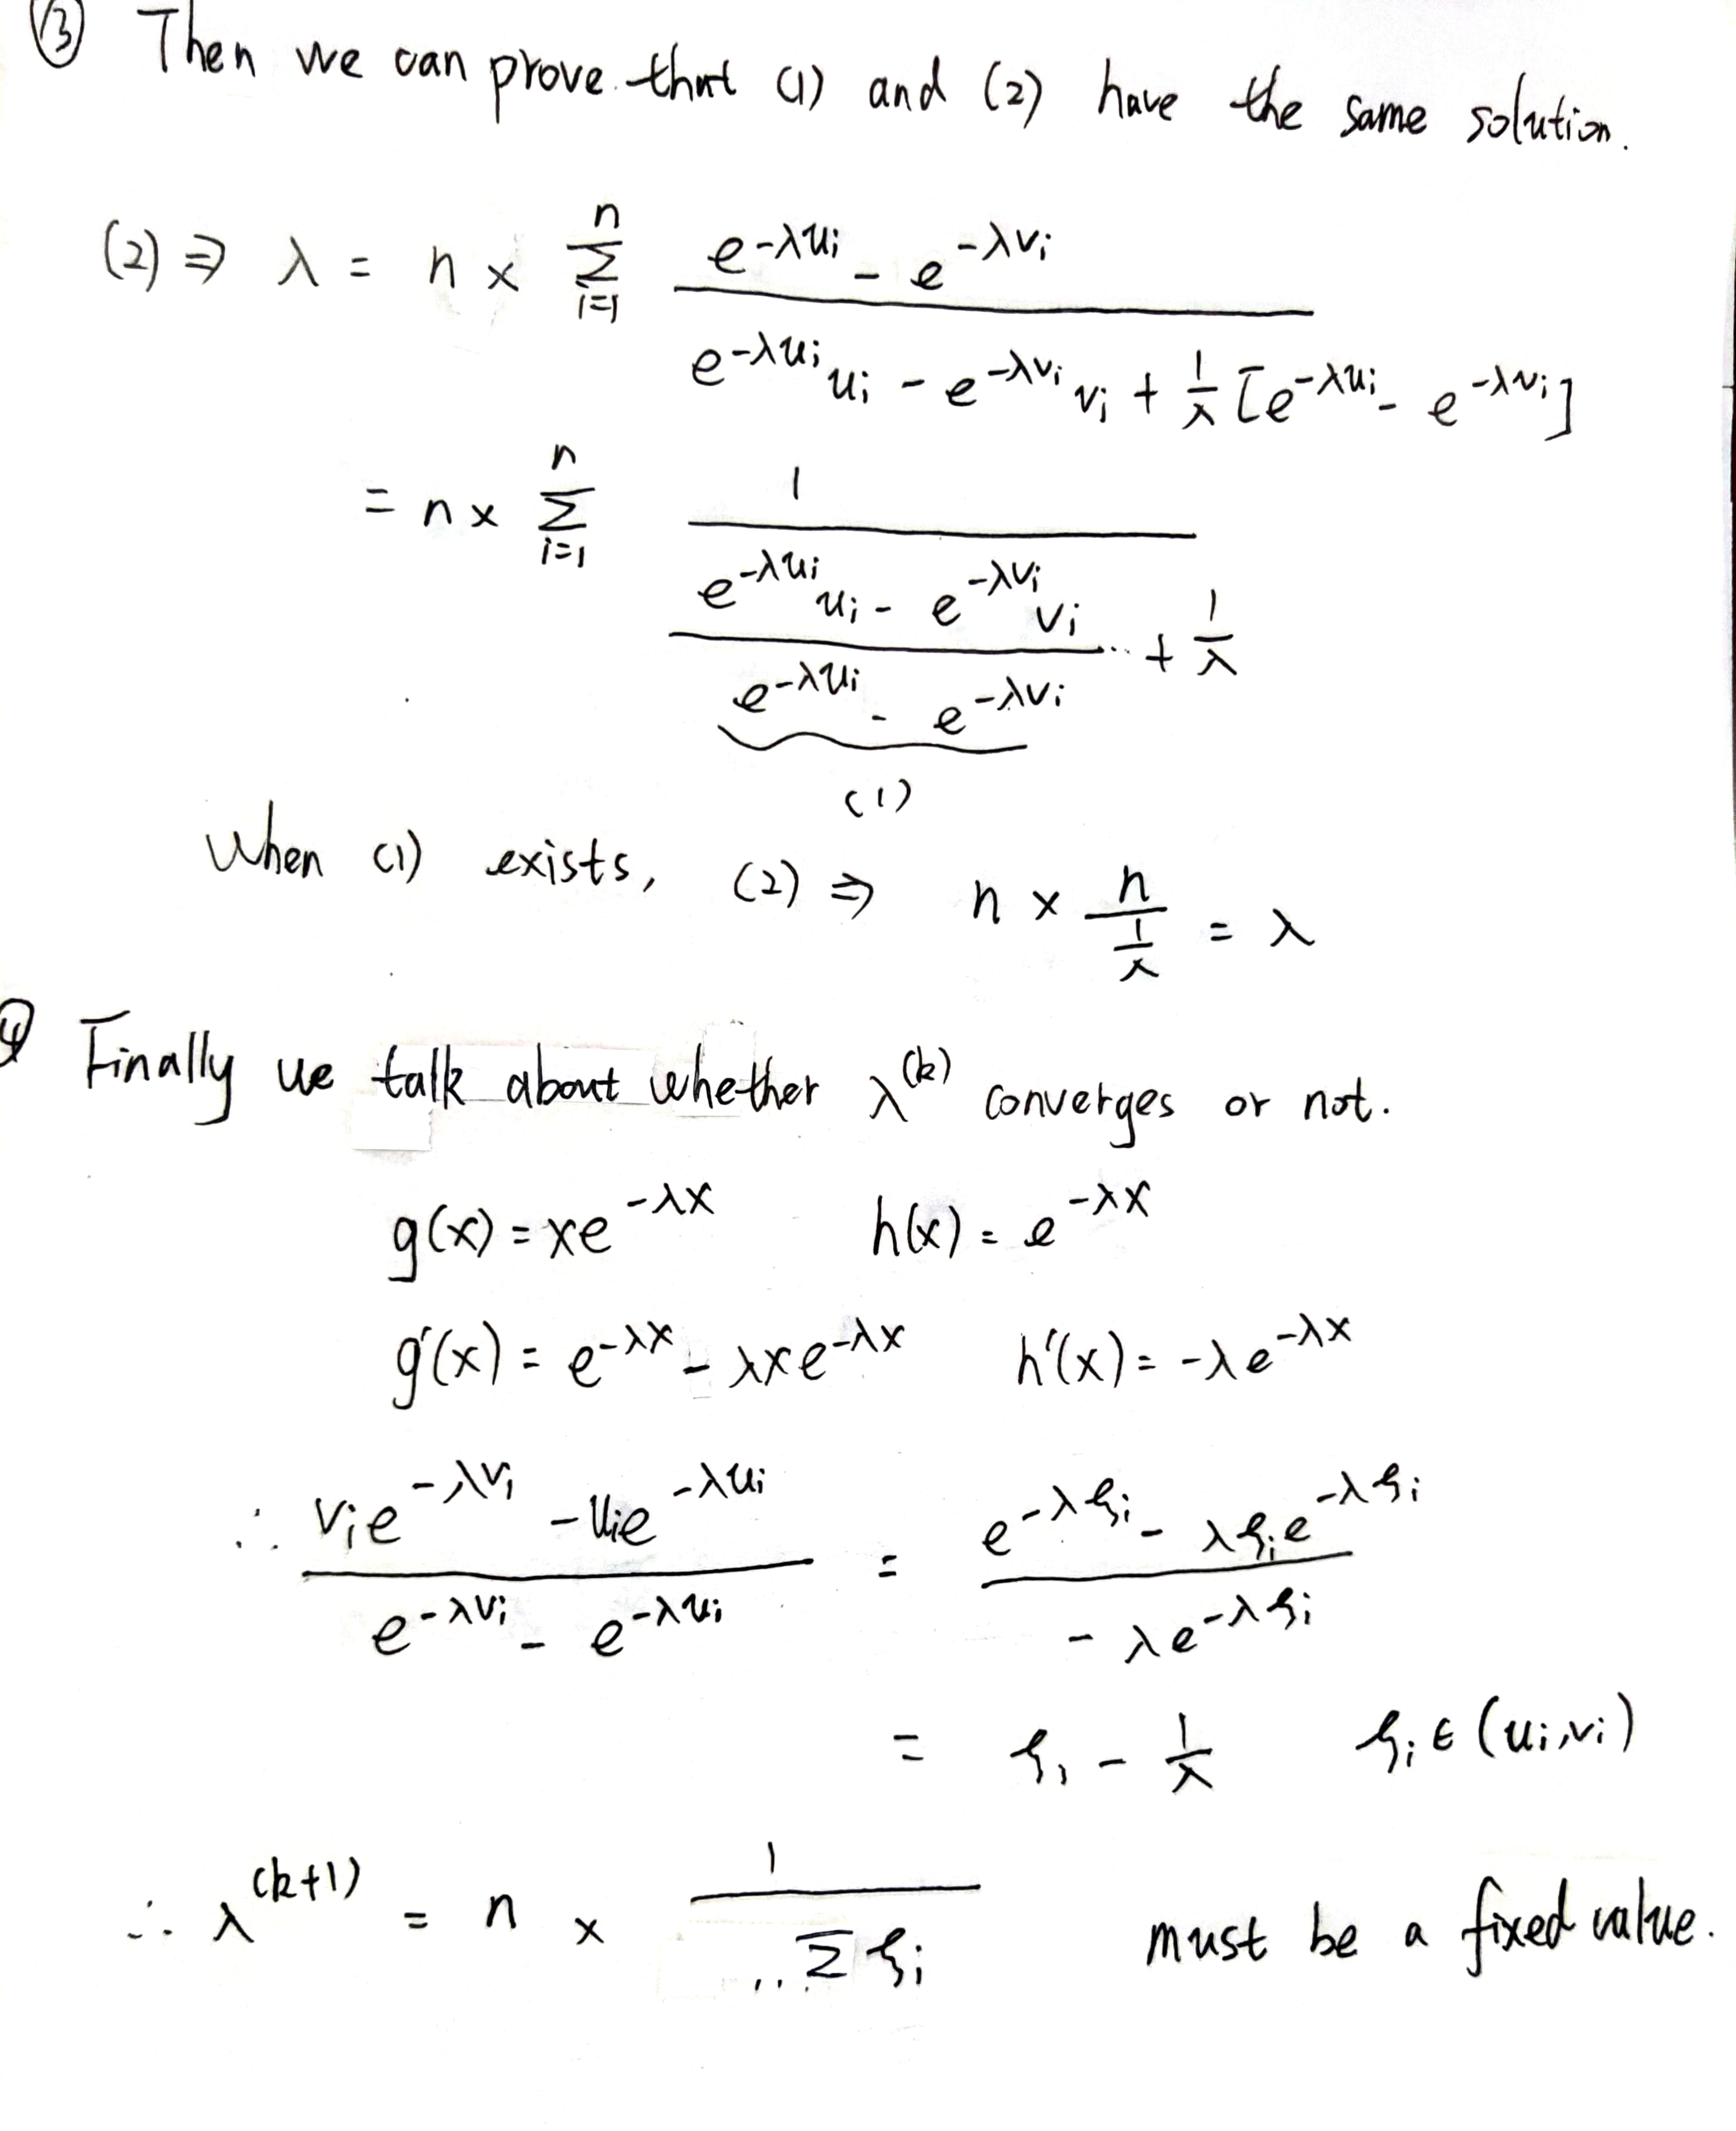 ③ Then we can prove that (1) and (2) have the same solution.
(2) ⇒ λ = n × \sum_{i=1}^{n} \frac{e^{-λu_i} - e^{-λv_i}}{e^{-λu_i}u_i - e^{-λv_i}v_i + \frac{1}{λ}[e^{-λu_i} - e^{-λv_i}]}
= n × \sum_{i=1}^{n} \frac{1}{\frac{e^{-λu_i}u_i - e^{-λv_i}v_i}{e^{-λu_i} - e^{-λv_i}} + \frac{1}{λ}}
(1)
When (1) exists, (2) ⇒ n × \frac{n}{\frac{1}{λ}} = λ
④ Finally we talk about whether λ^{(k)} converges or not.
g(x) = xe^{-λx} h(x) = e^{-λx}
g'(x) = e^{-λx} - λxe^{-λx} h'(x) = -λe^{-λx}
∴ \frac{v_ie^{-λv_i} - u_ie^{-λu_i}}{e^{-λv_i} - e^{-λu_i}} = \frac{e^{-λξ_i} - λξ_ie^{-λξ_i}}{-λe^{-λξ_i}}
= ξ_i - \frac{1}{λ} ξ_i ∈ (u_i, v_i)
∴ λ^{(k+1)} = n × \frac{1}{\sum ξ_i} must be a fixed value.